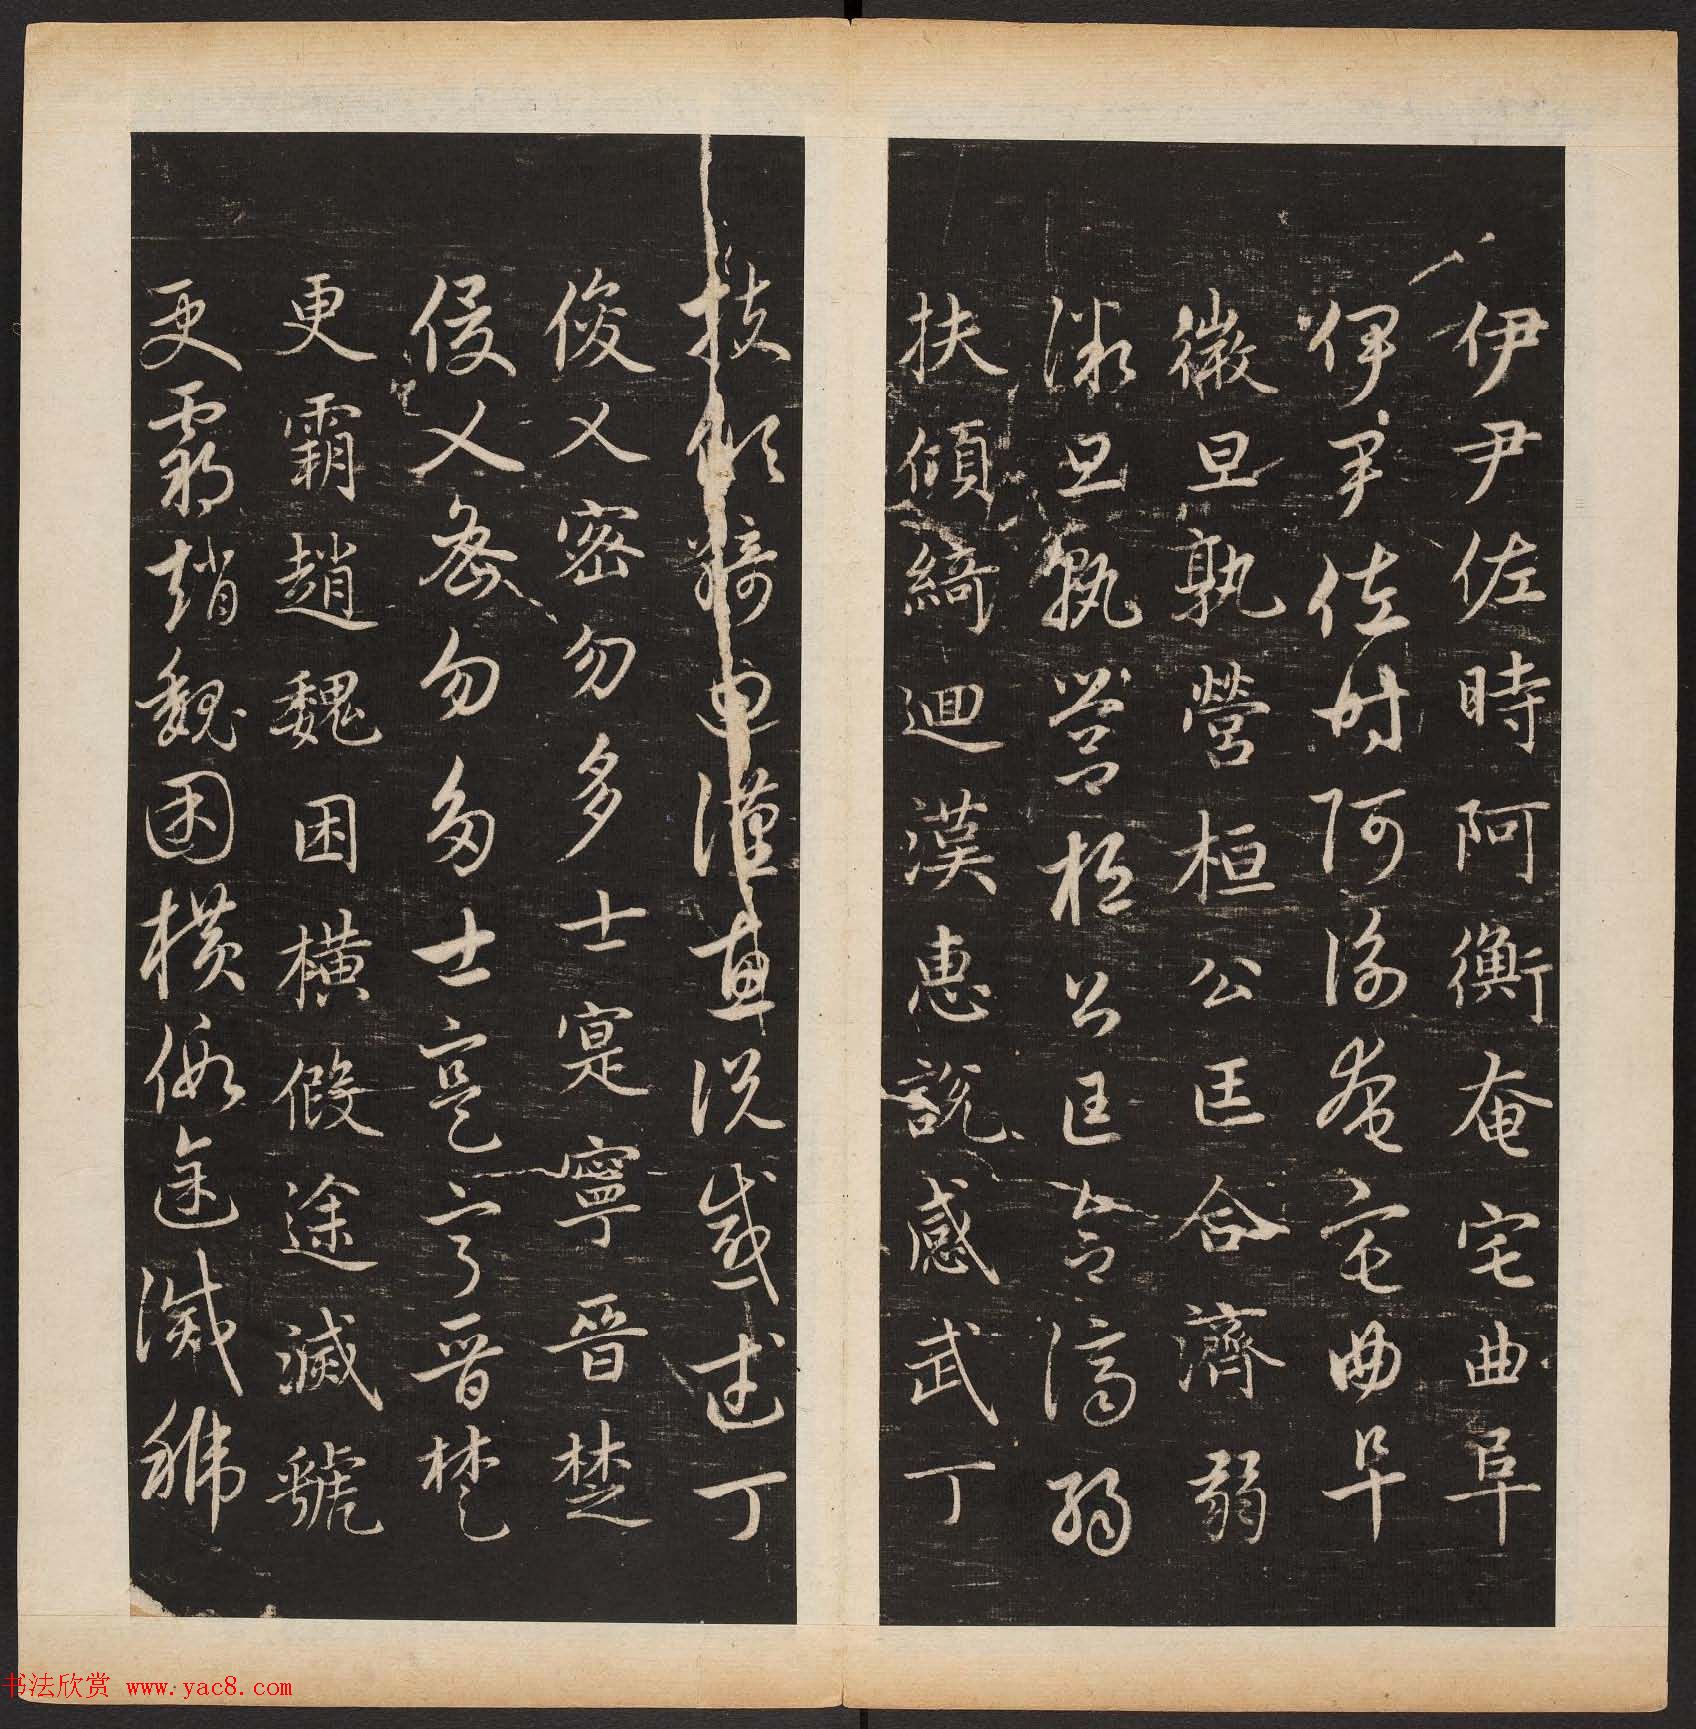 伊尹佐時阿衡奄宅曲阜
伊尹佐時阿衡奄宅曲阜
微旦孰營桓公匡合濟弱
微旦孰營桓公匡合濟弱
扶傾綺迴漢惠說感武丁
扶傾綺迴漢惠說感武丁
俊乂密勿多士寔寧晉楚
俊乂密勿多士寔寧晉楚
更霸趙魏困橫假途滅虢
更霸趙魏困橫假途滅虢
书法欣赏 www.yac8.com